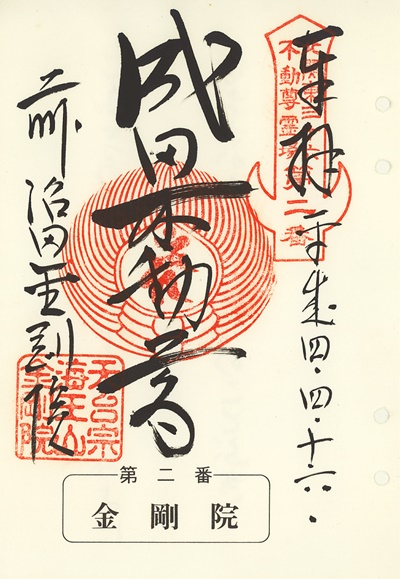 奉拝 平成四・四・十六・
不動尊霊場
第二番
成田不動尊
上州 沼田金剛院
天台宗
海王山
金剛院
第二番
金剛院